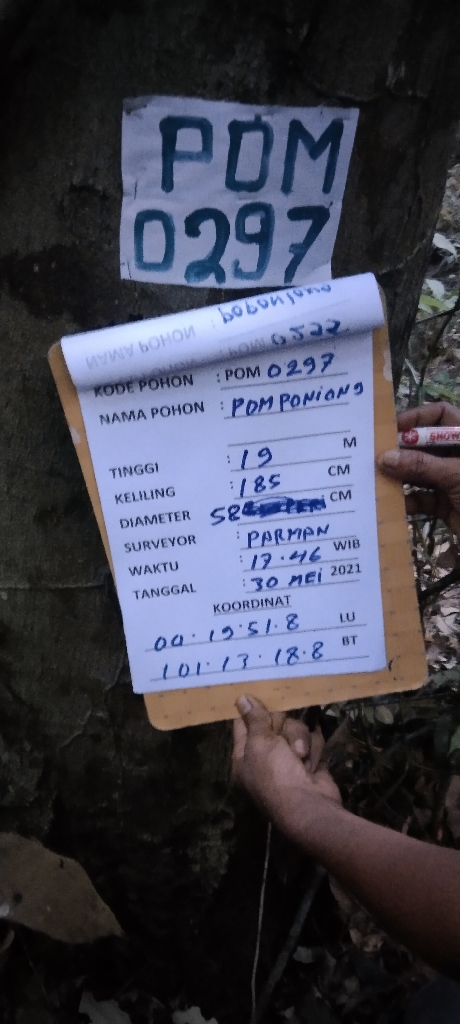 POM
0297
NAMA POHON : POPONJONO
POHON : POM 0522
KODE POHON : POM 0297
NAMA POHON : POMPONIONG
TINGGI : 19 M
KELILING : 185 CM
DIAMETER 58 CM
SURVEYOR : PARMAN
WAKTU : 17.46 WIB
TANGGAL : 30 MEI 2021
KOORDINAT
00.19.51.8 LU
101.13.18.8 BT
SNOW